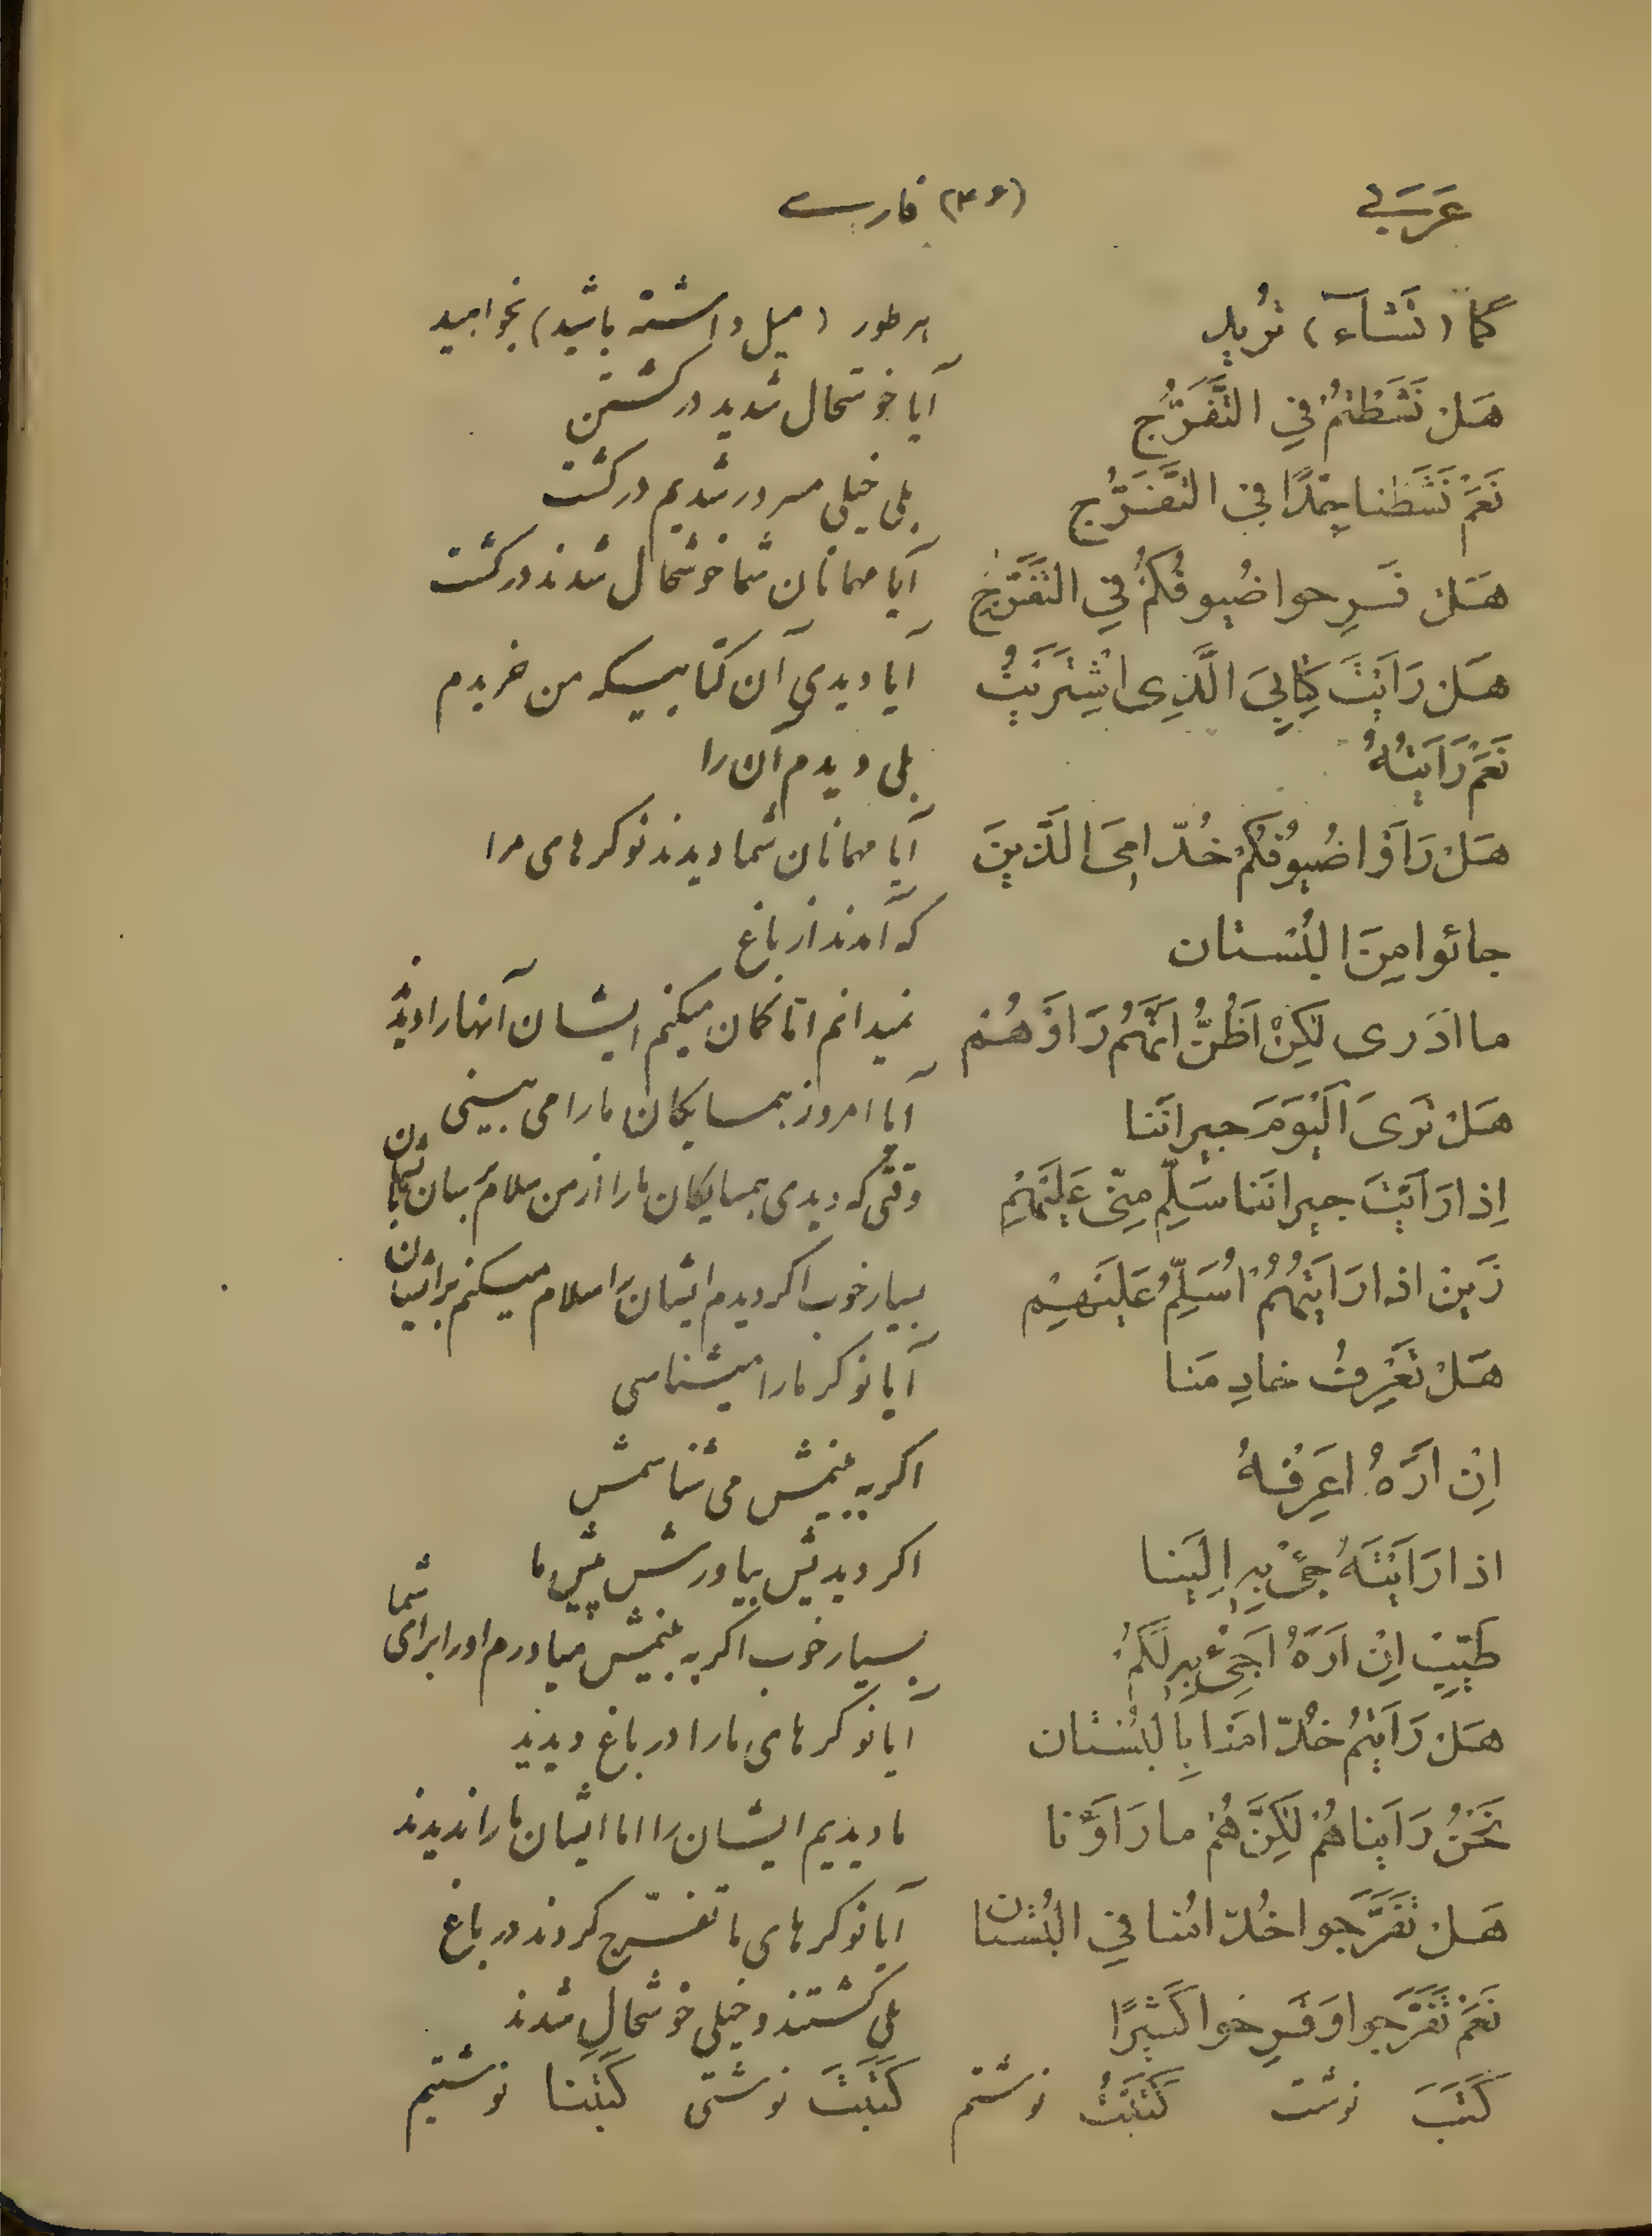 عَرَبی (۳۶) فارسی
كَمٰا (تَشٰآء) تُرِيد هرطور (میل داشته باشید) بخواهید
هَلْ نَشَطْتُمْ فِي التَّفَرُّج آیا خوشحال شدید در کشتن
نَعَمْ نَشَطْنا جِدًّا فِي التَّفَرُّج بلی خیلی مسرور شدیم در کشت
هَلْ فَرِحوا ضُيوفُكُمْ فِي التَّفَرُّج آیا مهمانان شما خوشحال شدند در کشت
هَلْ رَاَيْتَ كِتٰابِيَ الَّذِی اشْتَرَيْتُ آیا دیدی آن کتابیکه من خریدم
نَعَمْ رَاَيْتُهُ بلی دیدم آن را
هَلْ رَاَوْا ضُيوُفُكُمْ خُدّامِیَ الَّذينَ آیا مهمانان شما دیدند نوکرهای مرا
جائوا مِنَ الْبُسْتان که آمدند از باغ
ما اَدْری لٰكِنْ اَظُنُّ اَنَّهُمْ رَاَوْهُمْ نمیدانم اما کمان میکنم ایشان آنها را دیدند
هَلْ تَرىَ الْيَوْمَ جيرانَنا آیا امروز همسایکان ما را می بینی
اِذا رَاَيْتَ جيرانَنا سَلِّمْ مِنّی عَلَيْهِمْ وقتی که دیدی همسایکان ما را از من سلام برسان بایشان
زَيْن اذا رَاَيْتُهُمْ اُسَلِّمُ عَلَيْهِمْ بسیار خوب اکر دیدم ایشان را سلام میکنم بر ایشان
هَلْ تَعْرِفُ خادِمَنا آیا نوکر ما را میشناسی
اِنْ اَرَهُ اَعرِفْهُ اکر به بینمش می شناسمش
اذا رَاَيْتَهُ جِیْءْ بِهِ اِلَيْنا اکر دیدیش بیاورش پیش ما
طَيِّبْ اِنْ اَرَهُ اَجِیْءُ بِهِ لَكُمْ بسیار خوب اکر به بینمش میاورم او را برای شما
هَلْ رَاَيْتُمْ خُدّامَنا بِالْبُسْتان آیا نوکرهای ما را در باغ دیدید
نَحْنُ رَاَيْناهُمْ لٰكِنَّهُمْ ما رَاَوْنا ما دیدیم ایشان را اما ایشان ما را ندیدند
هَلْ تَفَرَّجوا خُدّامُنا فِي الْبُسْتان آیا نوکرهای ما تفرّج کردند در باغ
نَعَمْ تَفَرَّجوا وَ فَرِحوا كَثيرًا بلی کشتند و خیلی خوشحال شدند
كَتَبَ نوشت كَتَبْتُ نوشتم كَتَبْتَ نوشتی كَتَبْنا نوشتیم